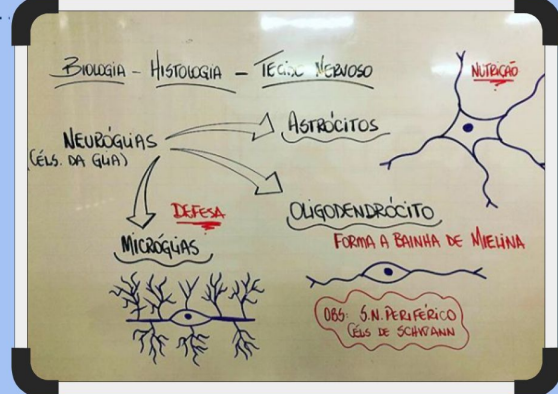 BIOLOGIA - HISTOLOGIA - TECIDO NERVOSO
NUTRIÇÃO
ASTRÓCITOS
NEURÓGLIAS
(CÉLS. DA GLIA)
DEFESA
MICRÓGLIAS
OLIGODENDRÓCITO
FORMA A BAINHA DE MIELINA
OBS: S.N. PERIFÉRICO
CÉLS DE SCHWANN